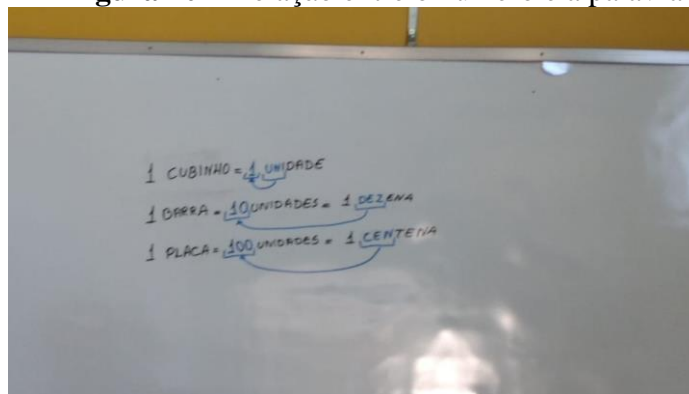 1 CUBINHO = 1 UNIDADE
1 BARRA = 10 UNIDADES = 1 DEZENA
1 PLACA = 100 UNIDADES = 1 CENTENA